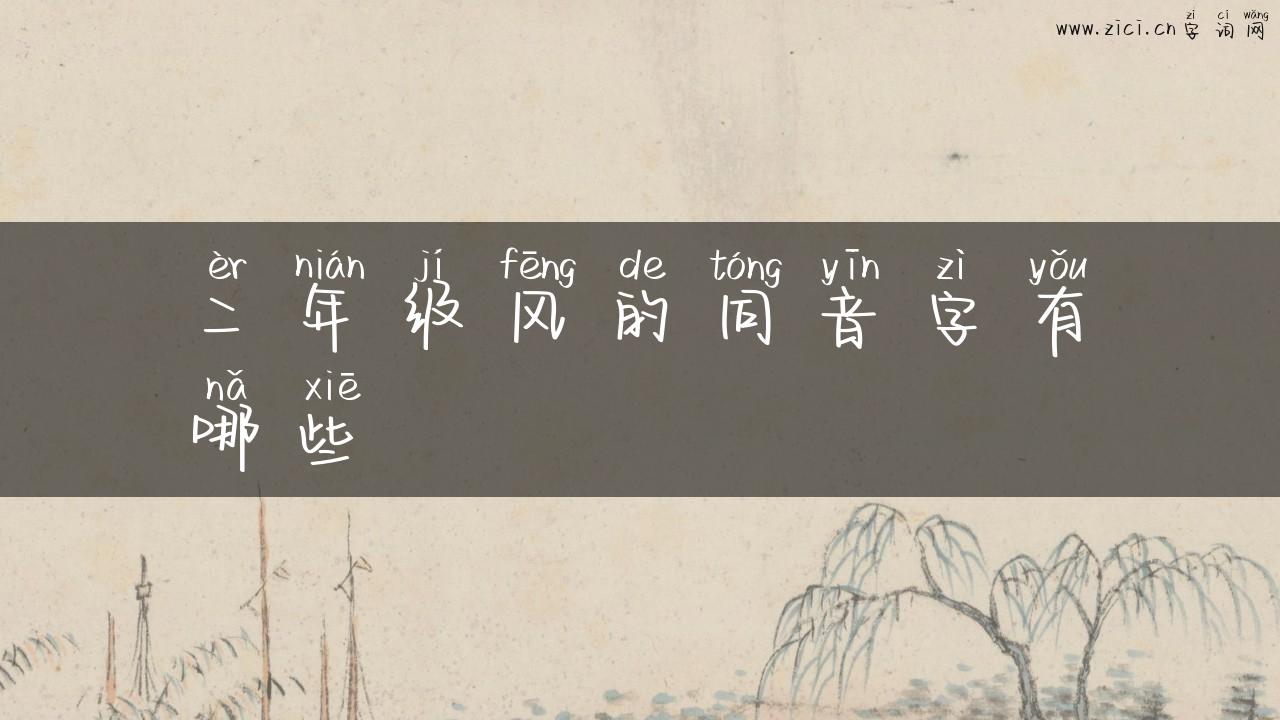 zì cí wǎng
www.zici.cn 字词网
èr nián jí fēng de tóng yīn zì yǒu
二年级风的同音字有
nǎ xiē
哪些